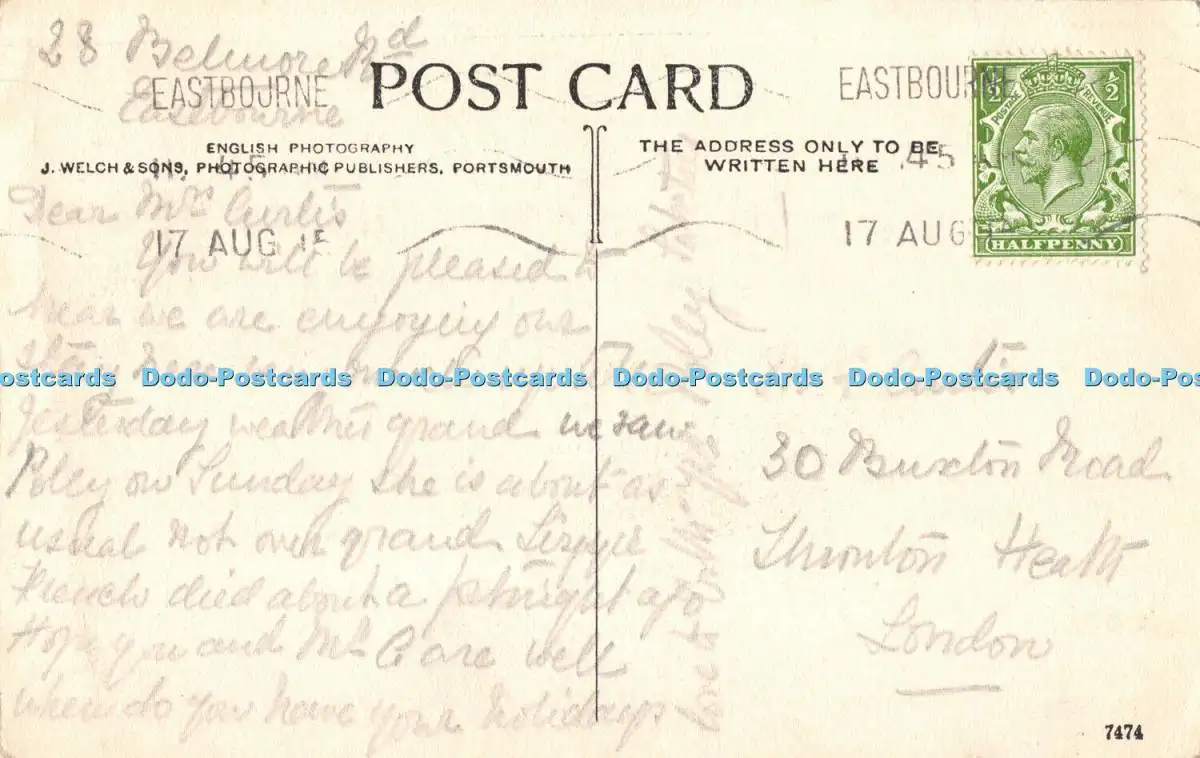 28 Belmore Rd
Eastbourne
POST CARD
ENGLISH PHOTOGRAPHY
J. WELCH & SONS, PHOTOGRAPHIC PUBLISHERS, PORTSMOUTH
THE ADDRESS ONLY TO BE
WRITTEN HERE
EASTBOURNE
17 AUG 15
EASTBOURNE
.45
17 AUG
POSTAGE REVENUE
HALFPENNY
Dear Mrs Curtis
You will be pleased to
hear we are enjoying our
stay
Yesterday weather grand we saw
Poley on Sunday she is about as
usual not over grand Lizzie
French died about a fortnight ago
Hope you and Mr C are well
when do you have your holidays
love to
Curtis
30 Buxton Road
Thronton Heath
London
7474
Dodo-Postcards Dodo-Postcards Dodo-Postcards Dodo-Postcards